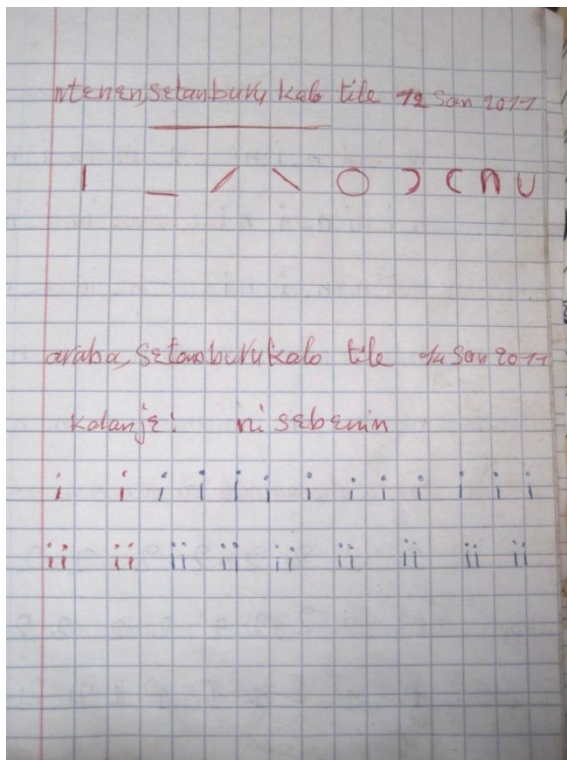 ntɛnɛn, sɛtanburu kalo tile 12 san 2011
| _ / \ O ) ( n U
araba, sɛtanburukalo tile 14 san 2011
kalanje: ni sɛbɛnnin
i i i i i i i i i i i i i
ii ii ii ii ii ii ii ii ii